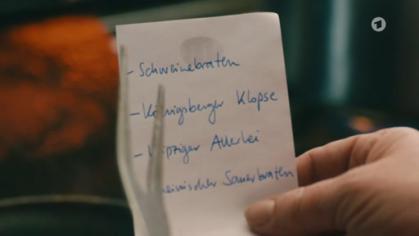 - Schweinebraten
- Königsberger Klopse
- Leipziger Allerlei
Rheinischer Sauerbraten